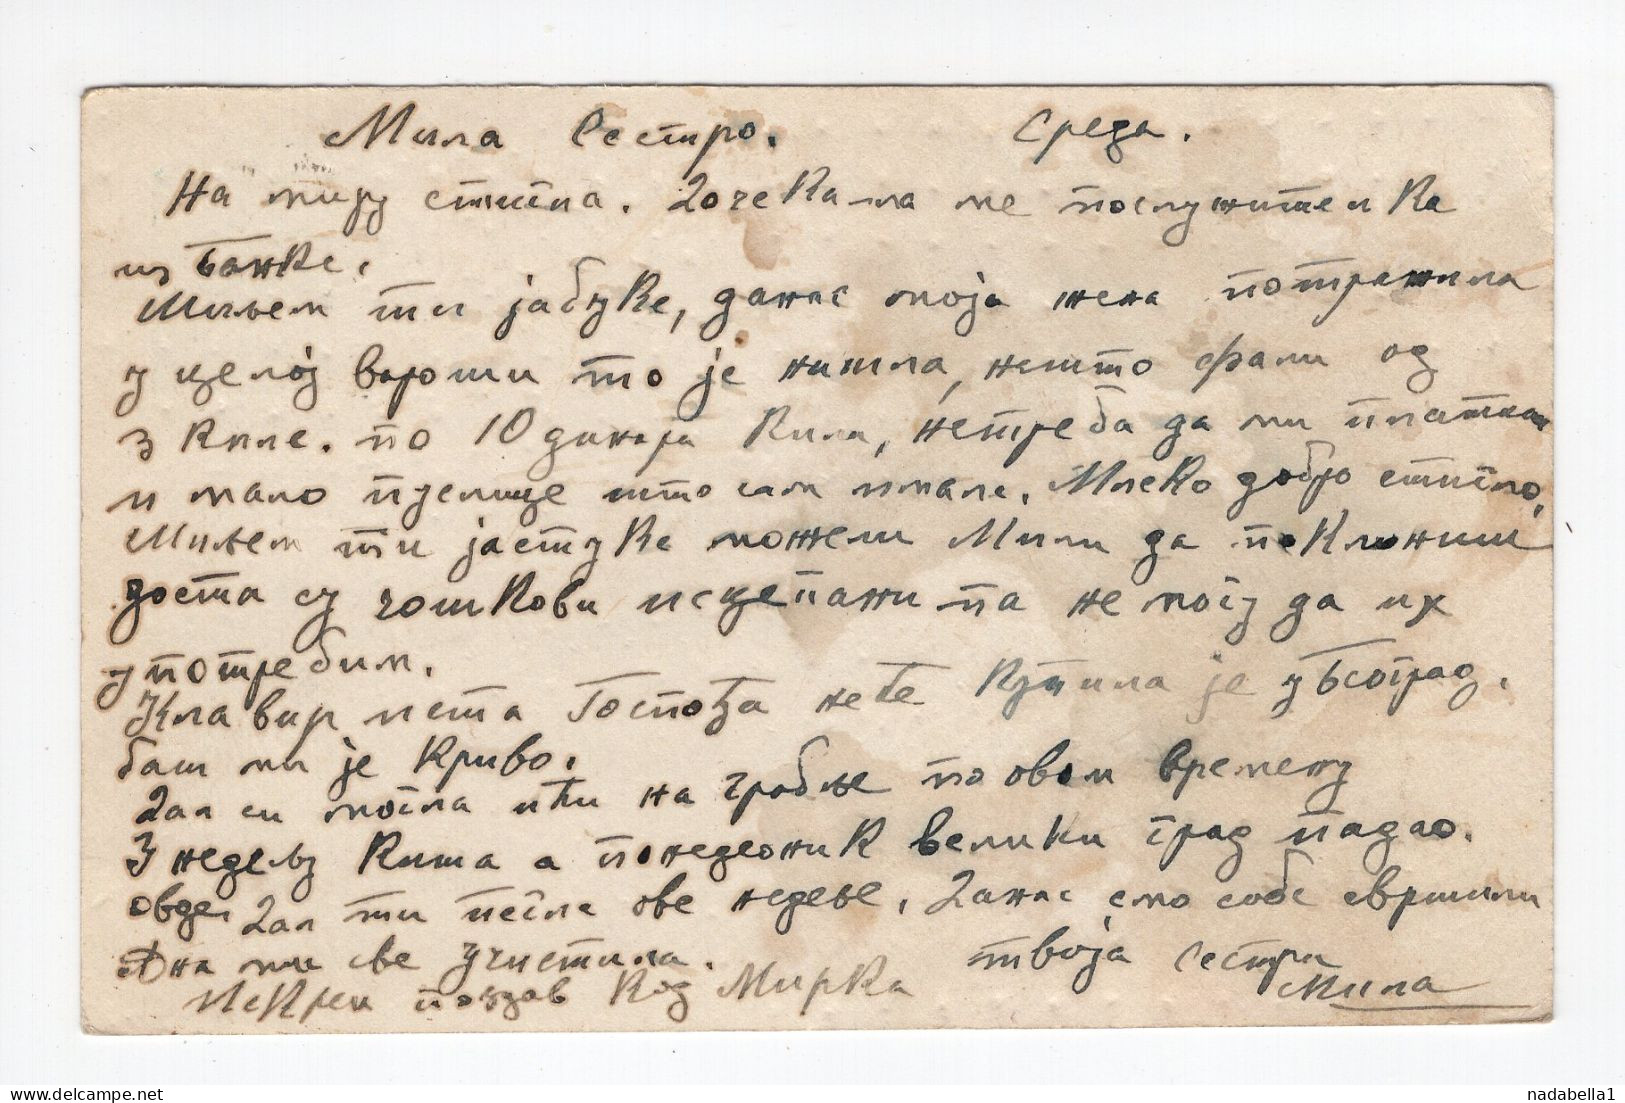 Мила Сестро. Среда.
На миру стигла. Дочекала ме послужитељка
из Банке.
Шиљем ти јабуке, данас моја жена потражила
у целој вароши то је нашла, нешто фали од
3 киле. по 10 динара кила, нетреба да ми платиш
и мало пјенице што сам имала. Млеко добро стигло,
Шиљем ти јастуке можеш Мили да поклониш
доста су ћошкови исцепани па не могу да их
употребим.
Клавир иста Госпођа неће купила је у Београд.
баш ми је криво.
Дал си могла ићи на гробље по овом времену
У недељу киша а понедеоник велики град падао.
овде. Дал ти пегла ове недеље. Данас смо собе свршили
Она ми све учистила. твоја Сестра
Искрен поздав код Мирка Мила
nadabella1